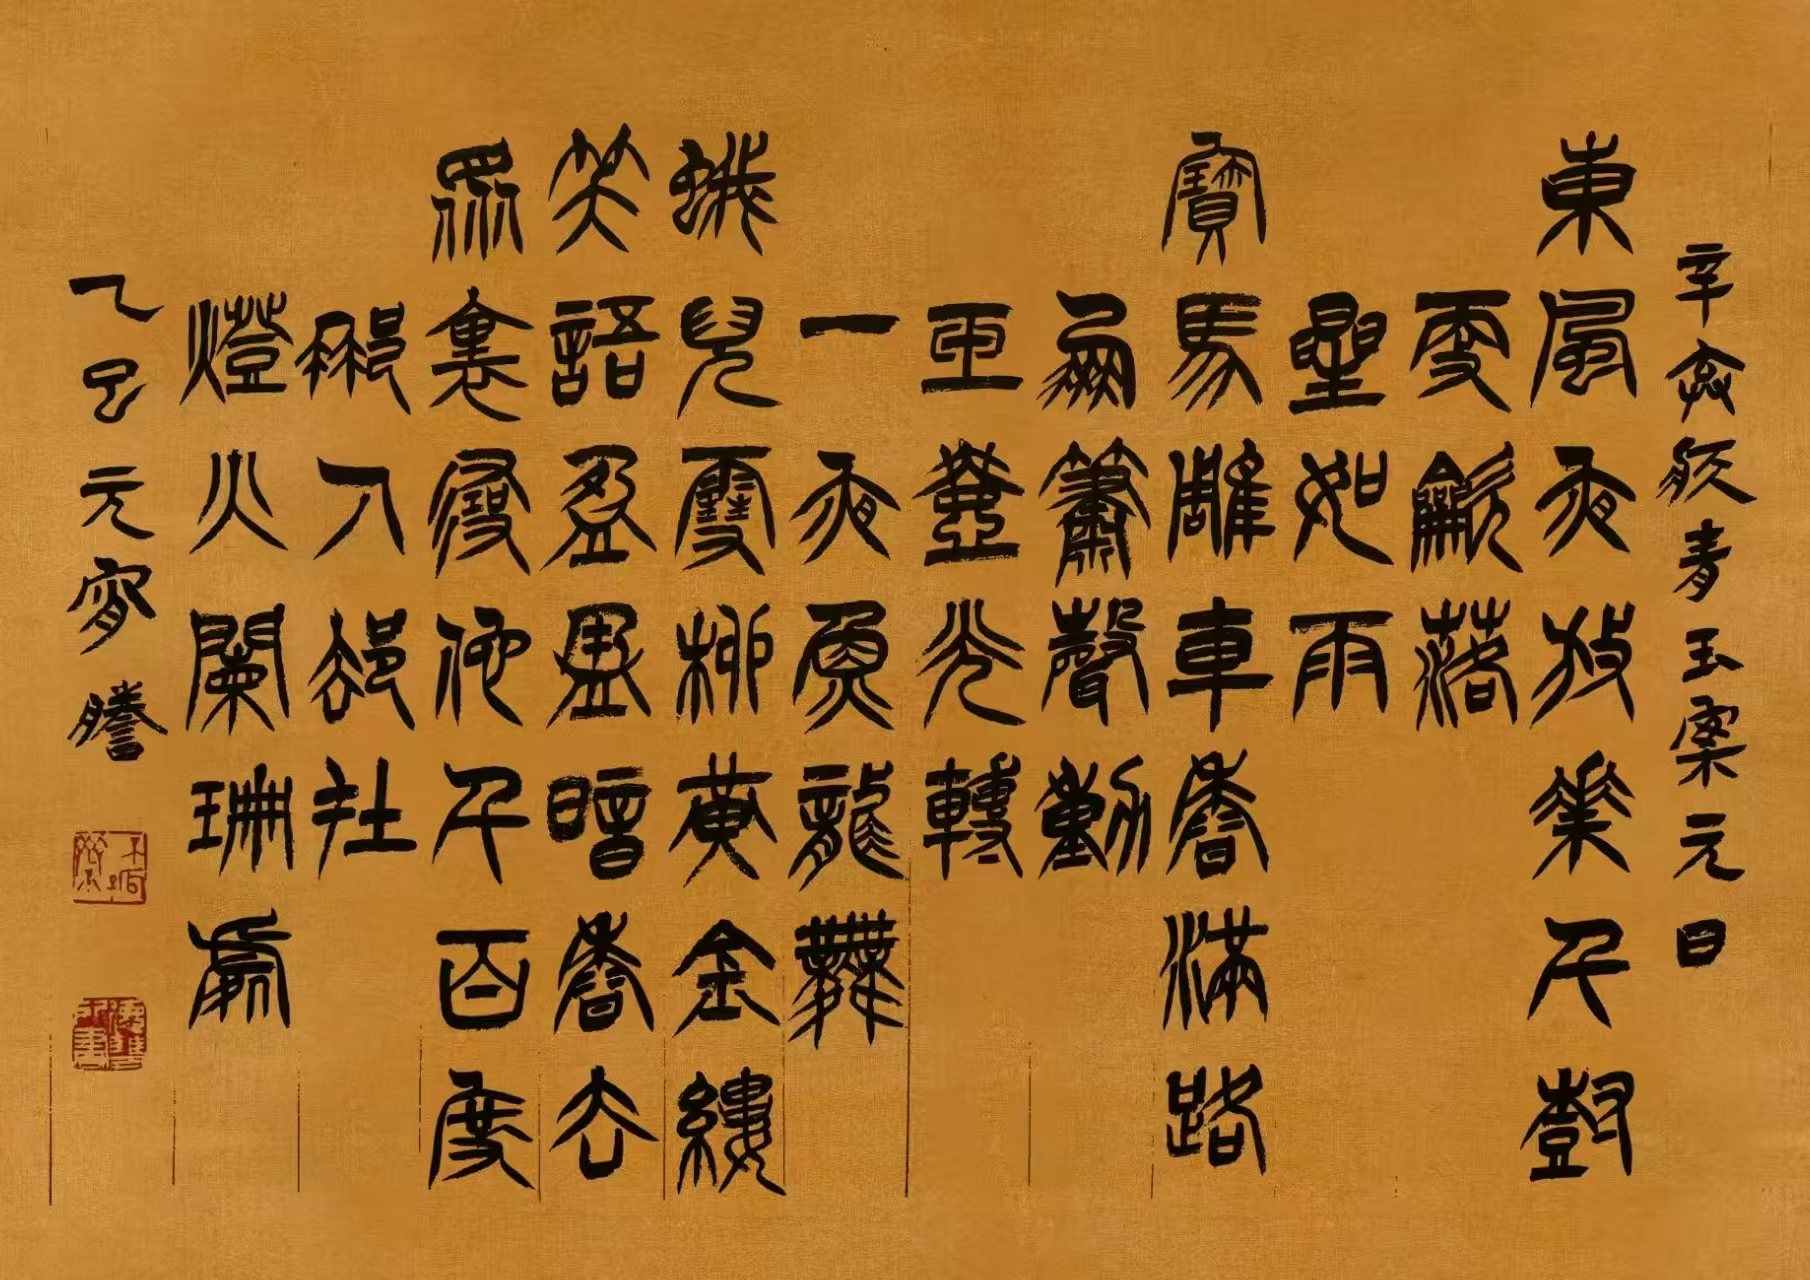 辛棄疾青玉案元日
東風夜放華千尌
更龡落
星如雨
寶馬雕車香滿路
鳳簫聲動
玉壺光轉
一夜魚龍舞
蛾兒雪柳黃金縷
笑語盈盈暗香去
眾裏尋他千百度
那人卻在
燈火闌珊處
乙巳元宵謄